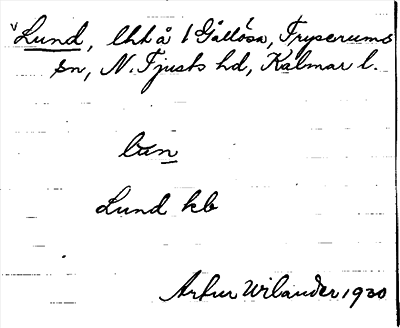 Lund, lht å 1 Gållösa, Tryserums
sn, N. Tjusts hd, Kalmar l.
lun
Lund kb
Artur Wilander 1930